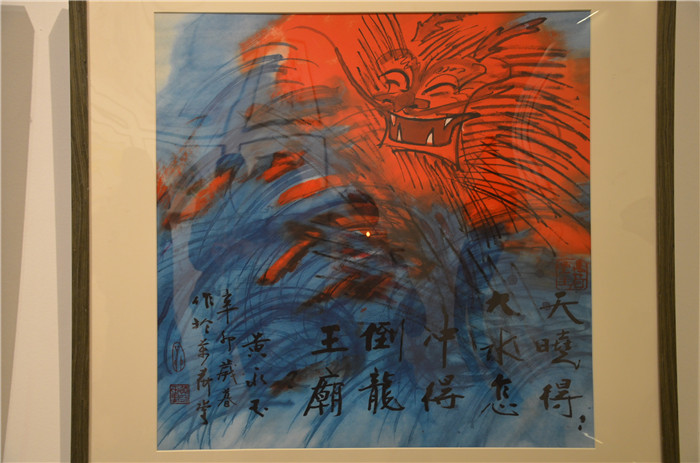 天曉得：
大水怎
冲得
倒龍
王廟
黄永玉
辛卯歲春
作於萬荷堂